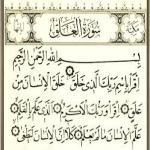 سُورَةُ الْعَلَقِ
بِسْمِ اللَّهِ الرَّحْمَٰنِ الرَّحِيمِ
اقْرَأْ بِاسْمِ رَبِّكَ الَّذِي خَلَقَ خَلَقَ الْإِنسَانَ مِنْ
عَلَقٍ اقْرَأْ وَرَبُّكَ الْأَكْرَمُ الَّذِي عَلَّمَ بِالْقَلَمِ
عَلَّمَ الْإِنسَانَ مَا لَمْ يَعْلَمْ كَلَّا إِنَّ الْإِنسَانَ لَيَطْغَىٰ